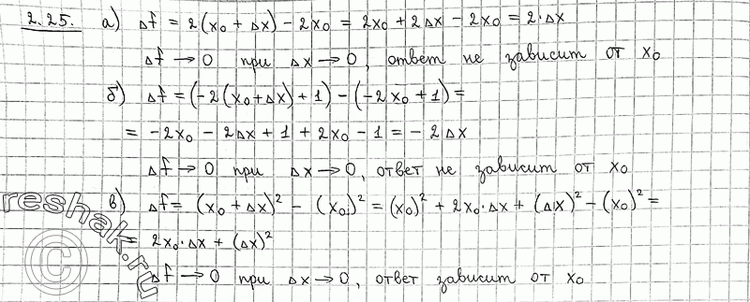 2.25. а) Δf = 2(x₀ + Δx) - 2x₀ = 2x₀ + 2Δx - 2x₀ = 2·Δx
Δf → 0 при Δx → 0, ответ не зависит от x₀
б) Δf = (-2(x₀+Δx)+1) - (-2x₀+1) =
= -2x₀ - 2Δx + 1 + 2x₀ - 1 = -2Δx
Δf → 0 при Δx → 0, ответ не зависит от x₀
в) Δf = (x₀ + Δx)² - (x₀)² = (x₀)² + 2x₀·Δx + (Δx)² - (x₀)² =
= 2x₀·Δx + (Δx)²
Δf → 0 при Δx → 0, ответ зависит от x₀
reshak.ru
©